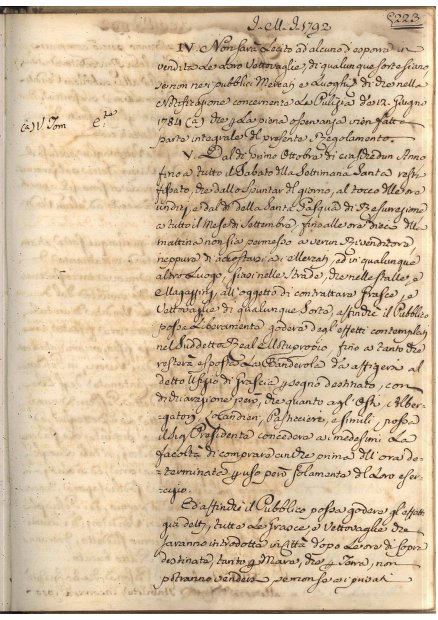 J. M. J. 1792
8223
IV. Non sarà lecito ad alcuno d'esporre in
vendita le altre Vettovaglie, di qualunque sorte siano,
se non nei pubblici Mercati e Luoghi di che nella
Notificazione concernente la Pulizia de 12. Giugno
(a) V. Tom
1784 (a) che la piena osservanza vien fatta
parte integrale del presente Regolamento.
V. Dal dì primo Ottobre di ciaschedun Anno
fino a tutto il Sabato della Settimana Santa resti
fissato, che dallo spuntar del giorno, al tocco delle ore
undici, e dal dì della Santa Pasqua di Resurrezione
a tutto il Mese di Settembre, fino alle ore dieci della
mattina non sia permesso a verun Rivenditore,
neppure di accostarsi ai Mercati, ed in qualunque
altro Luogo, sia nelle Strade, che nelle Stalle, e
Magazzini, all'oggetto di contrattare Grasce, e
Vettovaglie di qualunque Sorta, affinchè il Pubblico
possa liberamente godere degl'effetti contemplati
nel suddetto Real Motuproprio, fino a tanto che
resterà esposta la Banderola da affigersi al
detto Uffizio di Grascia segno destinato, con
dichiarazione però, che quanto agl'Osti, Alber-
gatori, Locandieri, Pasticcieri, e simili, possa
il Sig. Presidente concedere ai medesimi la
facoltà di comprare anche prima dell'ora de-
terminata uso però solamente del loro eser-
cizio.
Ed affinchè il Pubblico possa godere gl'effetti
già detti, tutte le Grasce e Vettovaglie che
saranno introdotte in Città dopo le ore di sopra
destinate, tanto Mare, che Terra, non
potranno vendersi se non se ai privati